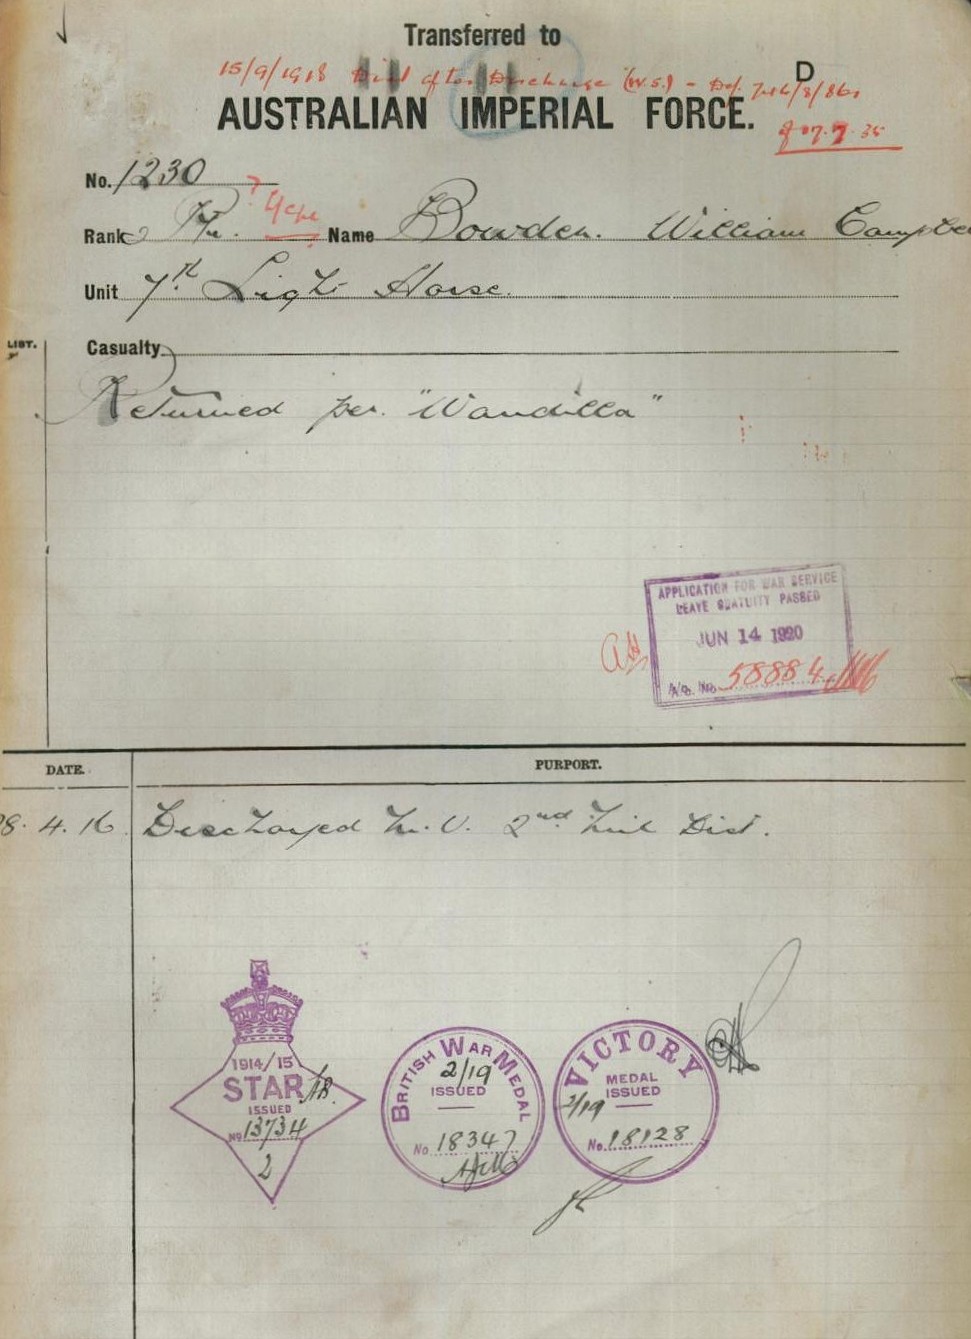 Transferred to
15/9/1918 Died after Discharge (W.S.) - Def.
D
AUSTRALIAN IMPERIAL FORCE.
No. 1230
Rank Pte. Name Bowden. William Campbe
Unit 7th Light Horse.
LIST.
Casualty
Returned per. "Wandilla"
APPLICATION FOR WAR SERVICE
LEAVE GRATUITY PASSED
JUN 14 1920
No. 58884
DATE. PURPORT.
8. 4. 16 Discharged M.U. 2nd Mil Dist.
1914/15
STAR
ISSUED
No 13734
2
BRITISH WAR MEDAL
2/19
ISSUED
No 18347
VICTORY
MEDAL
ISSUED
2/19
No. 18128